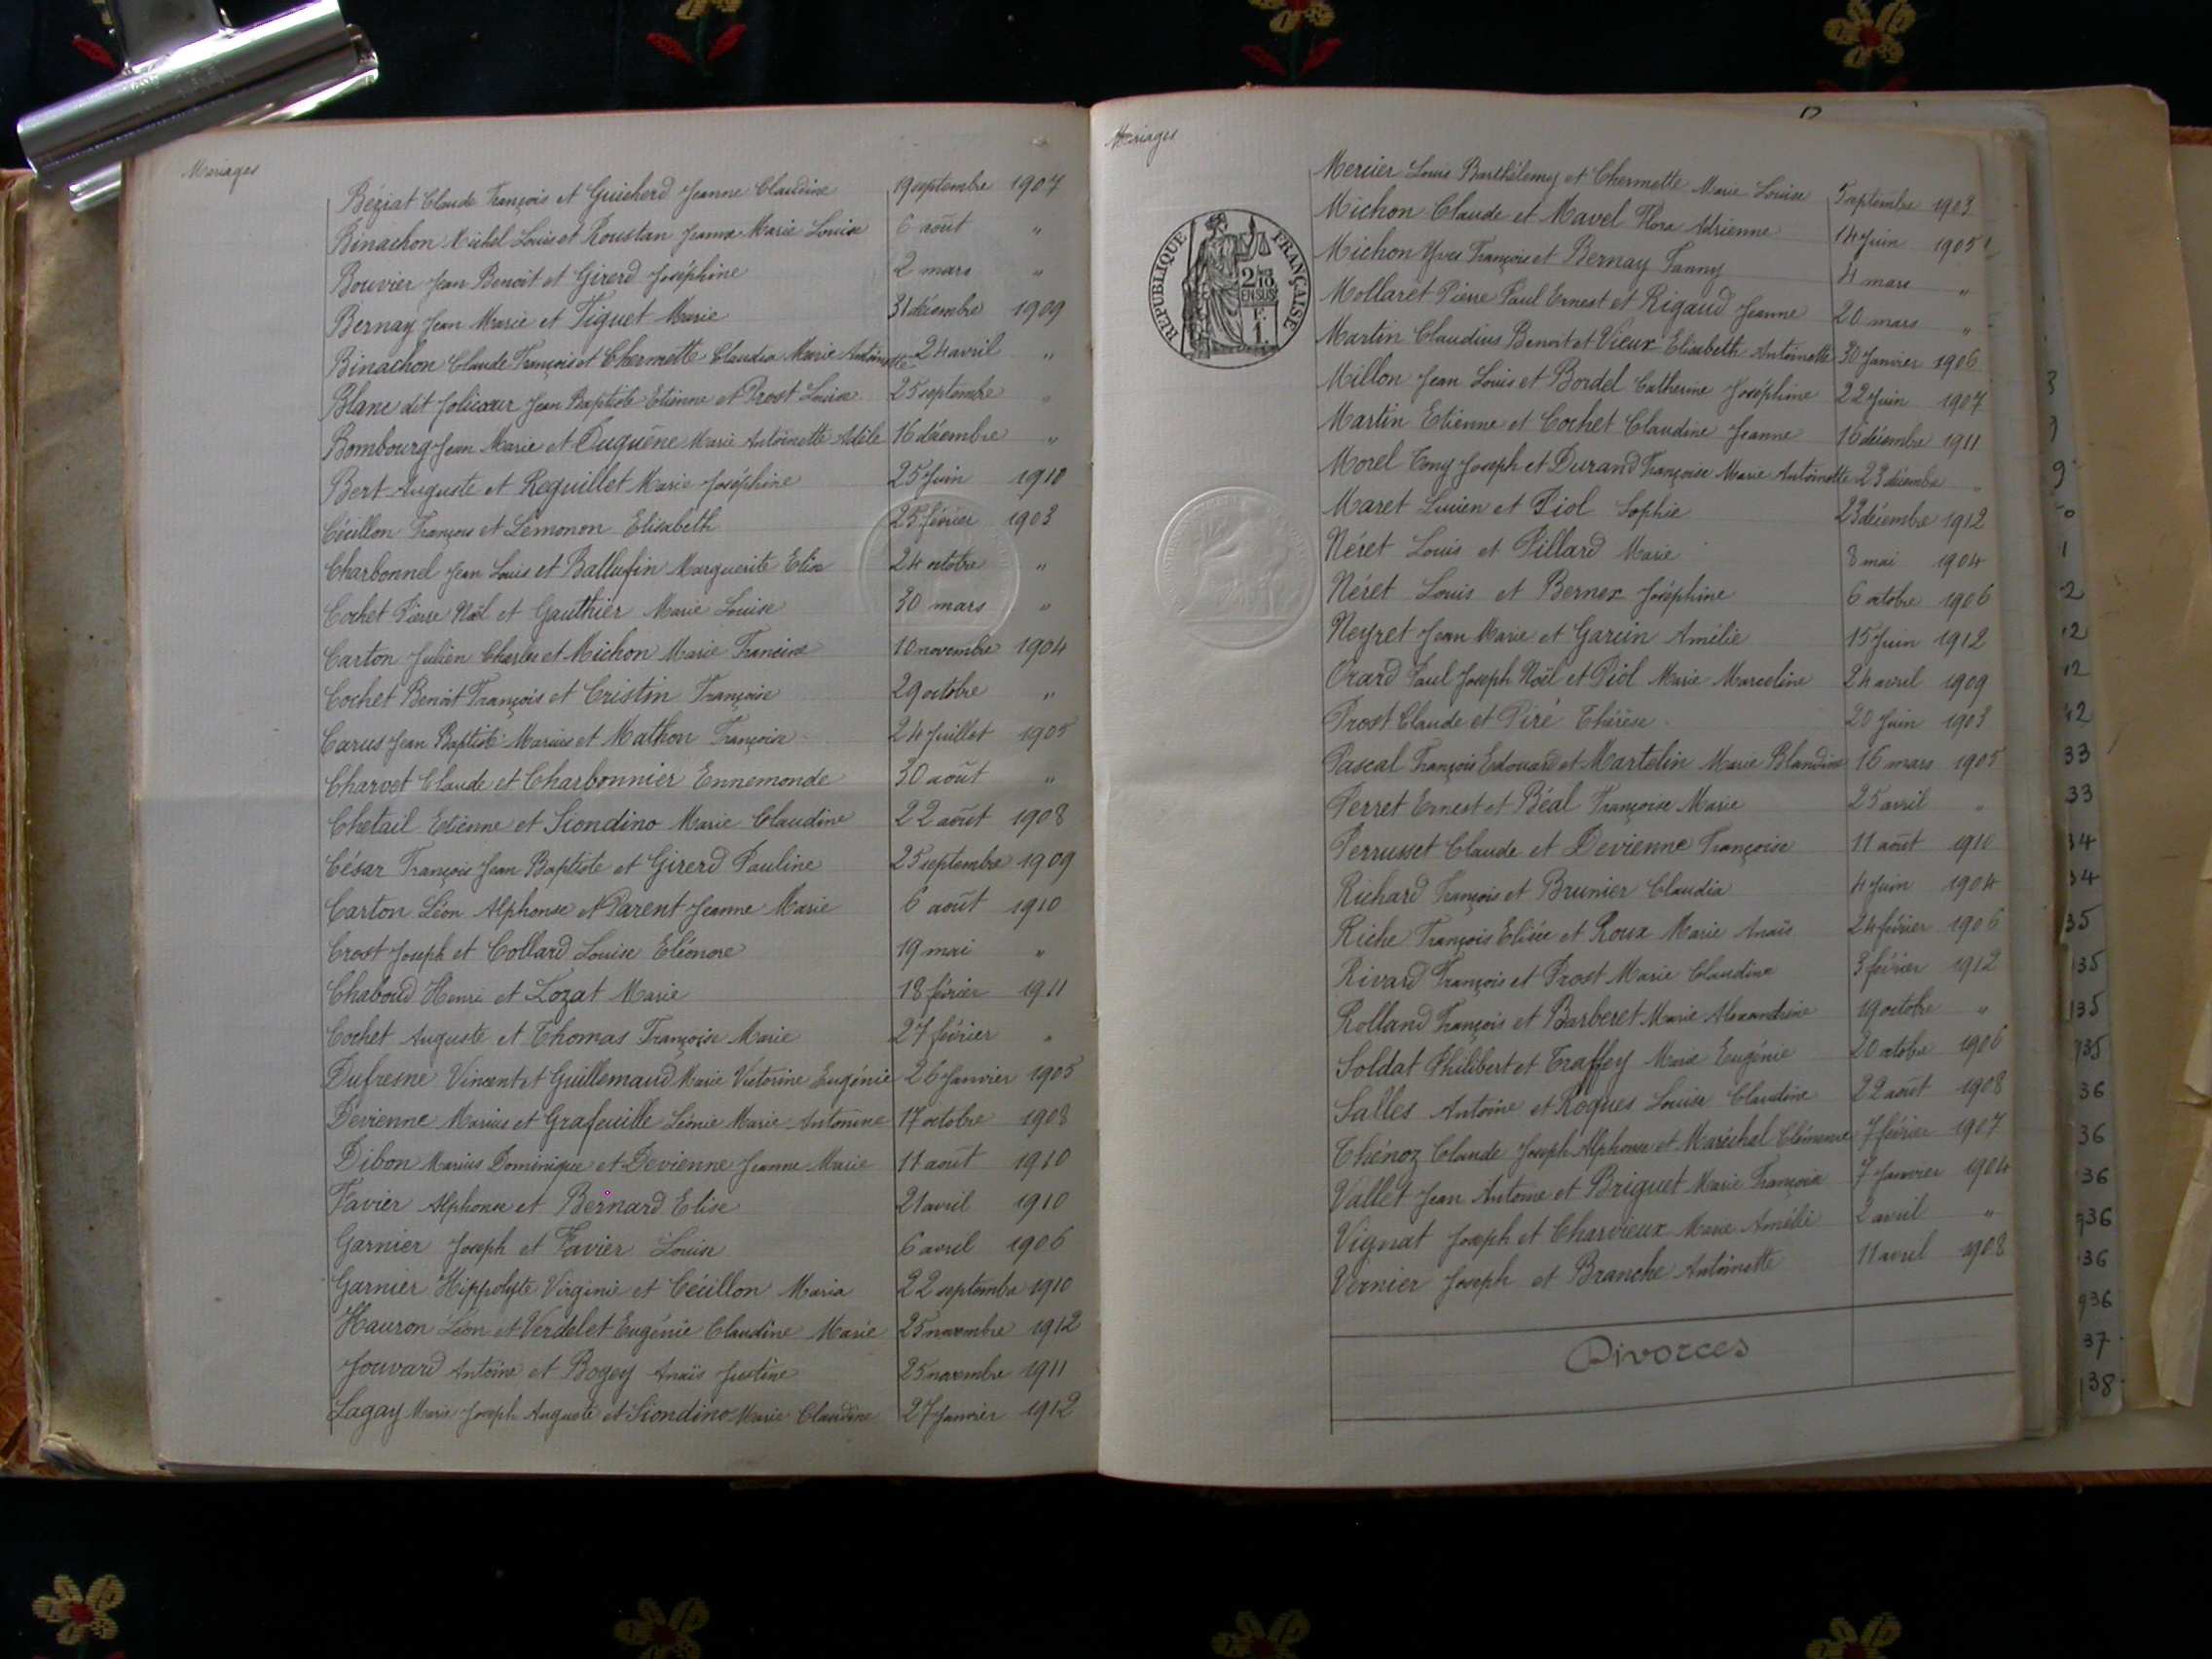 Mariages
Béziat Claude François et Guicherd Jeanne Claudine 19 septembre 1907
Binachon Michel Louis et Roustan Jeanne Marie Louise 6 août "
Bouvier Jean Benoit et Girerd Joséphine 2 mars "
Bernay Jean Marie et Tiquet Marie 31 décembre 1909
Binachon Claude François et Chermette Claudia Marie Antoinette 24 avril "
Blanc dit Jolicoeur Jean Baptiste Etienne et Prost Louise 25 septembre "
Bombourg Jean Marie et Duquène Marie Antoinette Adèle 16 décembre "
Bert Auguste et Reguillet Marie Joséphine 25 Juin 1910
Cécillon François et Lemonon Elisabeth 25 février 1903
Charbonnel Jean Louis et Ballufin Marguerite Elisa 24 octobre "
Cochet Pierre Noël et Gauthier Marie Louise 30 mars "
Carton Julien Charles et Michon Marie Francine 10 novembre 1904
Cochet Benoit François et Cristin Françoise 29 octobre "
Carus Jean Baptiste Marius et Mathon Françoise 24 Juillet 1905
Charvet Claude et Charbonnier Ennemonde 30 août "
Chetail Etienne et Siondino Marie Claudine 22 août 1908
César François Jean Baptiste et Girerd Pauline 25 septembre 1909
Carton Léon Alphonse et Parent Jeanne Marie 6 août 1910
Crost Joseph et Collard Louise Eléonore 19 mai "
Chaboud Henri et Lozat Marie 18 février 1911
Cochet Auguste et Thomas Françoise Marie 27 février "
Dufresne Vincent et Guillemaud Marie Victorine Eugénie 26 Janvier 1905
Devienne Marius et Grafeuille Léonie Marie Antonine 17 octobre 1908
Dibon Marius Dominique et Devienne Jeanne Marie 11 août 1910
Favier Alphonse et Bernard Elise 21 avril 1910
Garnier Joseph et Favier Louise 6 avril 1906
Garnier Hippolyte Virginie et Cécillon Maria 22 septembre 1910
Hauron Léon et Verdelet Eugénie Claudine Marie 25 novembre 1912
Jouvard Antoine et Bogey Anaïs Justine 25 novembre 1911
Lagay Marie Joseph Auguste et Siondino Marie Claudine 27 Janvier 1912
Mariages
REPUBLIQUE FRANÇAISE
2/10 EN SUS
1 F.
Mercier Louis Barthélemy et Chermette Marie Louise 5 septembre 1903
Michon Claude et Mavel Flora Adrienne 14 Juin 1905
Michon Yves François et Bernay Fanny 4 mars "
Mollaret Pierre Paul Ernest et Rigaud Jeanne 20 mars "
Martin Claudius Benoit et Vieux Elisabeth Antoinette 30 Janvier 1906
Millon Jean Louis et Bordel Catherine Joséphine 22 Juin 1907
Martin Etienne et Cochet Claudine Jeanne 16 décembre 1911
Morel Tony Joseph et Durand Françoise Marie Antoinette 23 décembre "
Maret Lucien et Piol Sophie 23 décembre 1912
Néret Louis et Pillard Marie 8 mai 1904
Néret Louis et Bernex Joséphine 6 octobre 1906
Neyret Jean Marie et Garcin Amélie 15 Juin 1912
Orard Paul Joseph Noël et Piol Marie Marceline 24 avril 1909
Prost Claude et Piré Thérèse 20 Juin 1903
Pascal François Edouard et Martelin Marie Blandine 16 mars 1905
Perret Ernest et Béal Françoise Marie 25 avril "
Perrusset Claude et Devienne Françoise 11 août 1910
Richard François et Brunier Claudia 4 Juin 1904
Riche François Elisée et Roux Marie Anaïs 24 février 1906
Rivard François et Prost Marie Claudine 3 février 1912
Rolland François et Barberet Marie Alexandrine 19 octobre "
Soldat Philibert et Traffey Marie Eugénie 20 octobre 1906
Salles Antoine et Roques Louise Claudine 22 août 1908
Thénoz Claude Joseph Alphonse et Maréchal Clémence 7 février 1907
Vallet Jean Antoine et Briguet Marie Françoise 7 Janvier 1904
Vignat Joseph et Charvieux Marie Amélie 2 avril "
Vernier Joseph et Branche Antoinette 11 avril 1908
Divorces
3
9
0
1
2
12
12
42
33
33
34
34
35
135
135
935
36
36
36
936
36
936
37
138